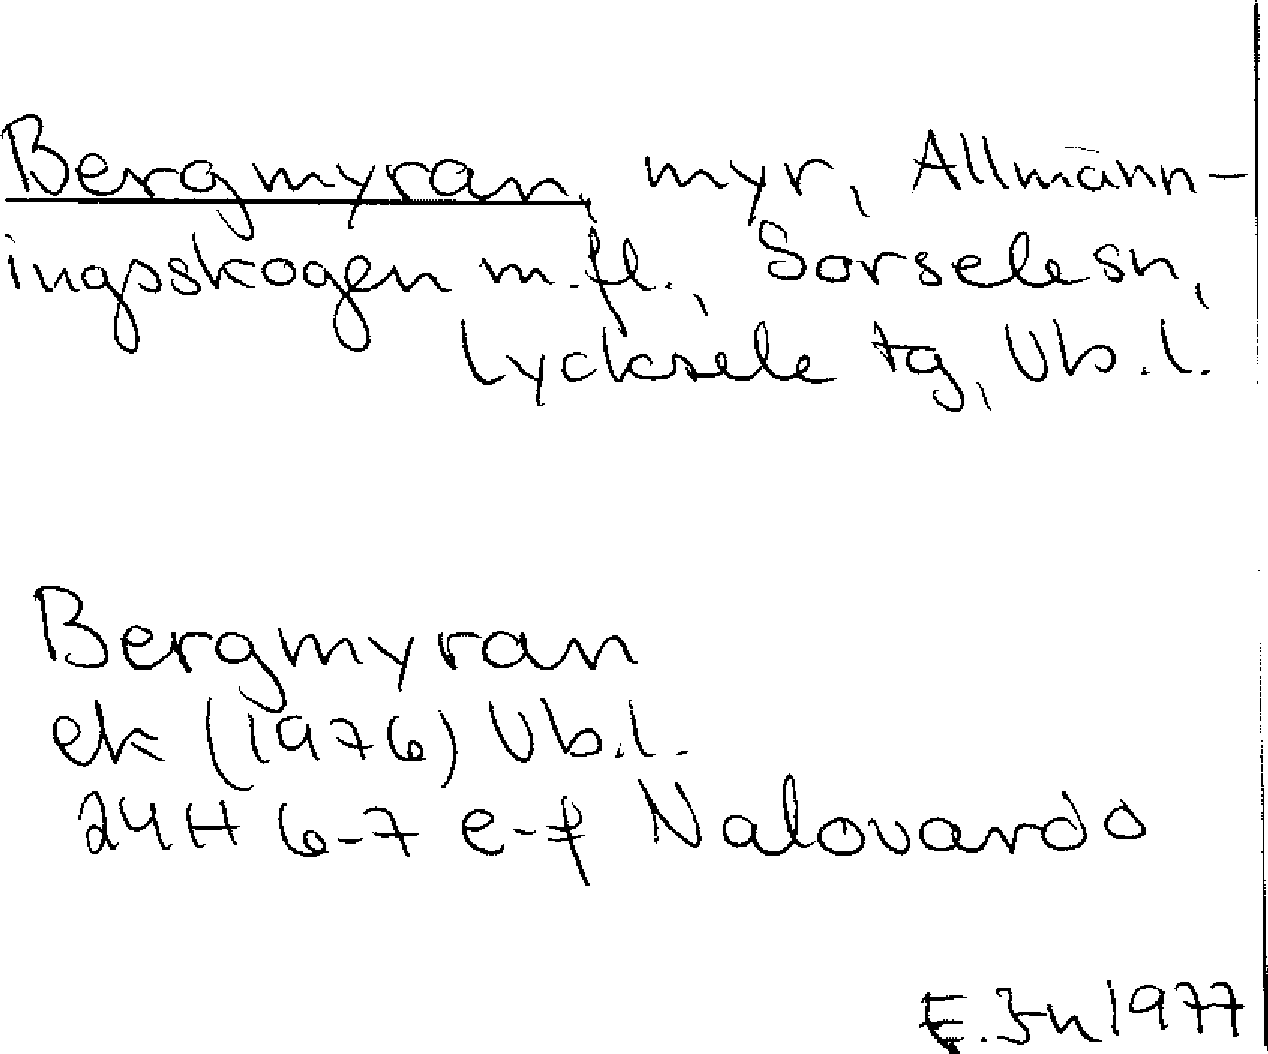 Bergmyran, myr, Allmänn-
ingsskogen m.fl., Sorsele sn,
Lycksele tg, Vb.l.
Bergmyran
ek (1976) Vb.l.
24H 6-7 e-f Nalovardo
E.Jn 1977